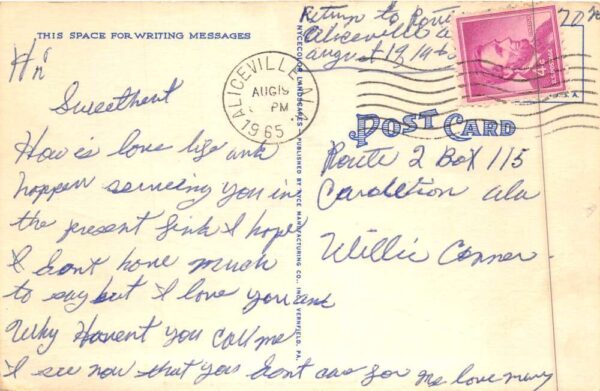 THIS SPACE FOR WRITING MESSAGES
Hi
Sweetheart
How is love life and
hoppen seneeing you in
the present find I hope
I dont have much
to say but I love you and
Why Havent you call me
I see now that you dont care for me love mary
NYCECOLOR LANDSCAPES - PUBLISHED BY NYCE MANUFACTURING CO., INC., VERNFIELD, PA.
Return to Route
Aliceville
august 19 19
ALICEVILLE, ALA
AUG 19
PM
1965
4¢
POST CARD
Route 2 Box 115
ala
Willie Conner